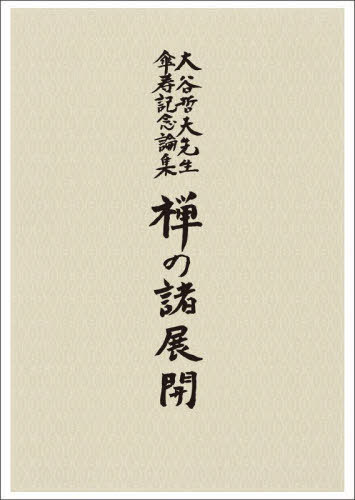 大谷哲夫先生
傘寿記念論集
禅の諸展開